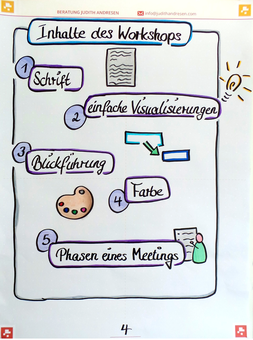 BERATUNG JUDITH ANDRESEN info@judithandresen.com
Inhalte des Workshops
1 Schrift
2 einfache Visualisierungen
3 Blickführung
4 Farbe
5 Phasen eines Meetings
4